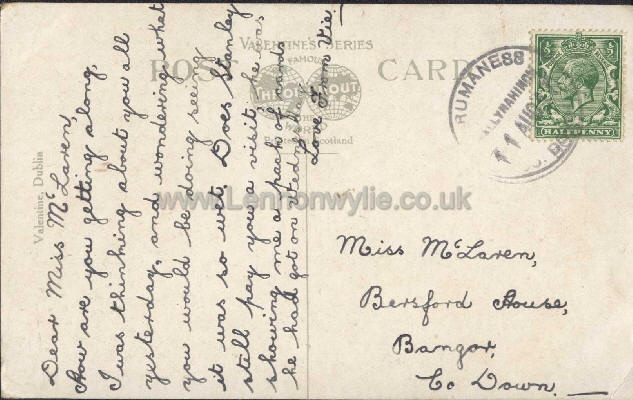 VALENTINE'S SERIES
FAMOUS
POST CARD
THROUGHOUT
WORLD
Scotland
Valentine, Dublin
HALFPENNY
RUMANESS
11 AU
www.Lennonwylie.co.uk
Dear Miss McLaren,
How are you getting along,
I was thinking about you all
yesterday, and wondering what
you would be doing seeing
it was so wet. Does Stanley
still pay you a visit, he was
showing me a pack of cards
he had got on Wednesday
Love from Vie.
Miss McLaren,
Bersford House,
Bangor,
Co Down.